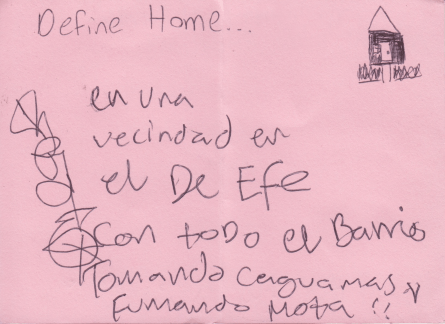 Define Home...
en una
vecindad en
el De Efe
Con todo el Barrio
Tomando Caguamas y
Fumando Mota !!